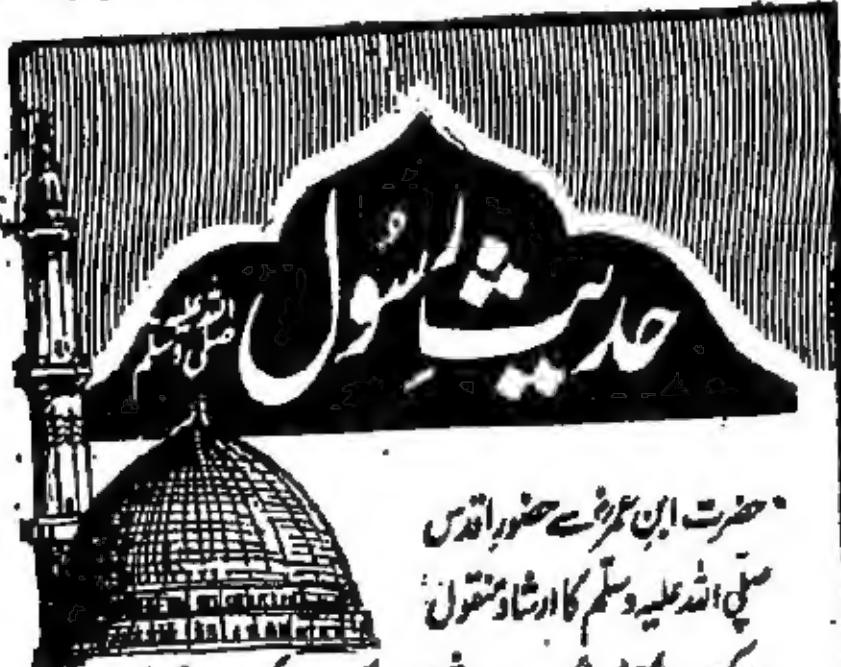 حدیث الرسُول
صلی اللہ علیہ وسلم
حضرت ابن عمرؓ سے حضورِ اقدس
صلّی اللہ علیہ وسلّم کا ارشاد منقول